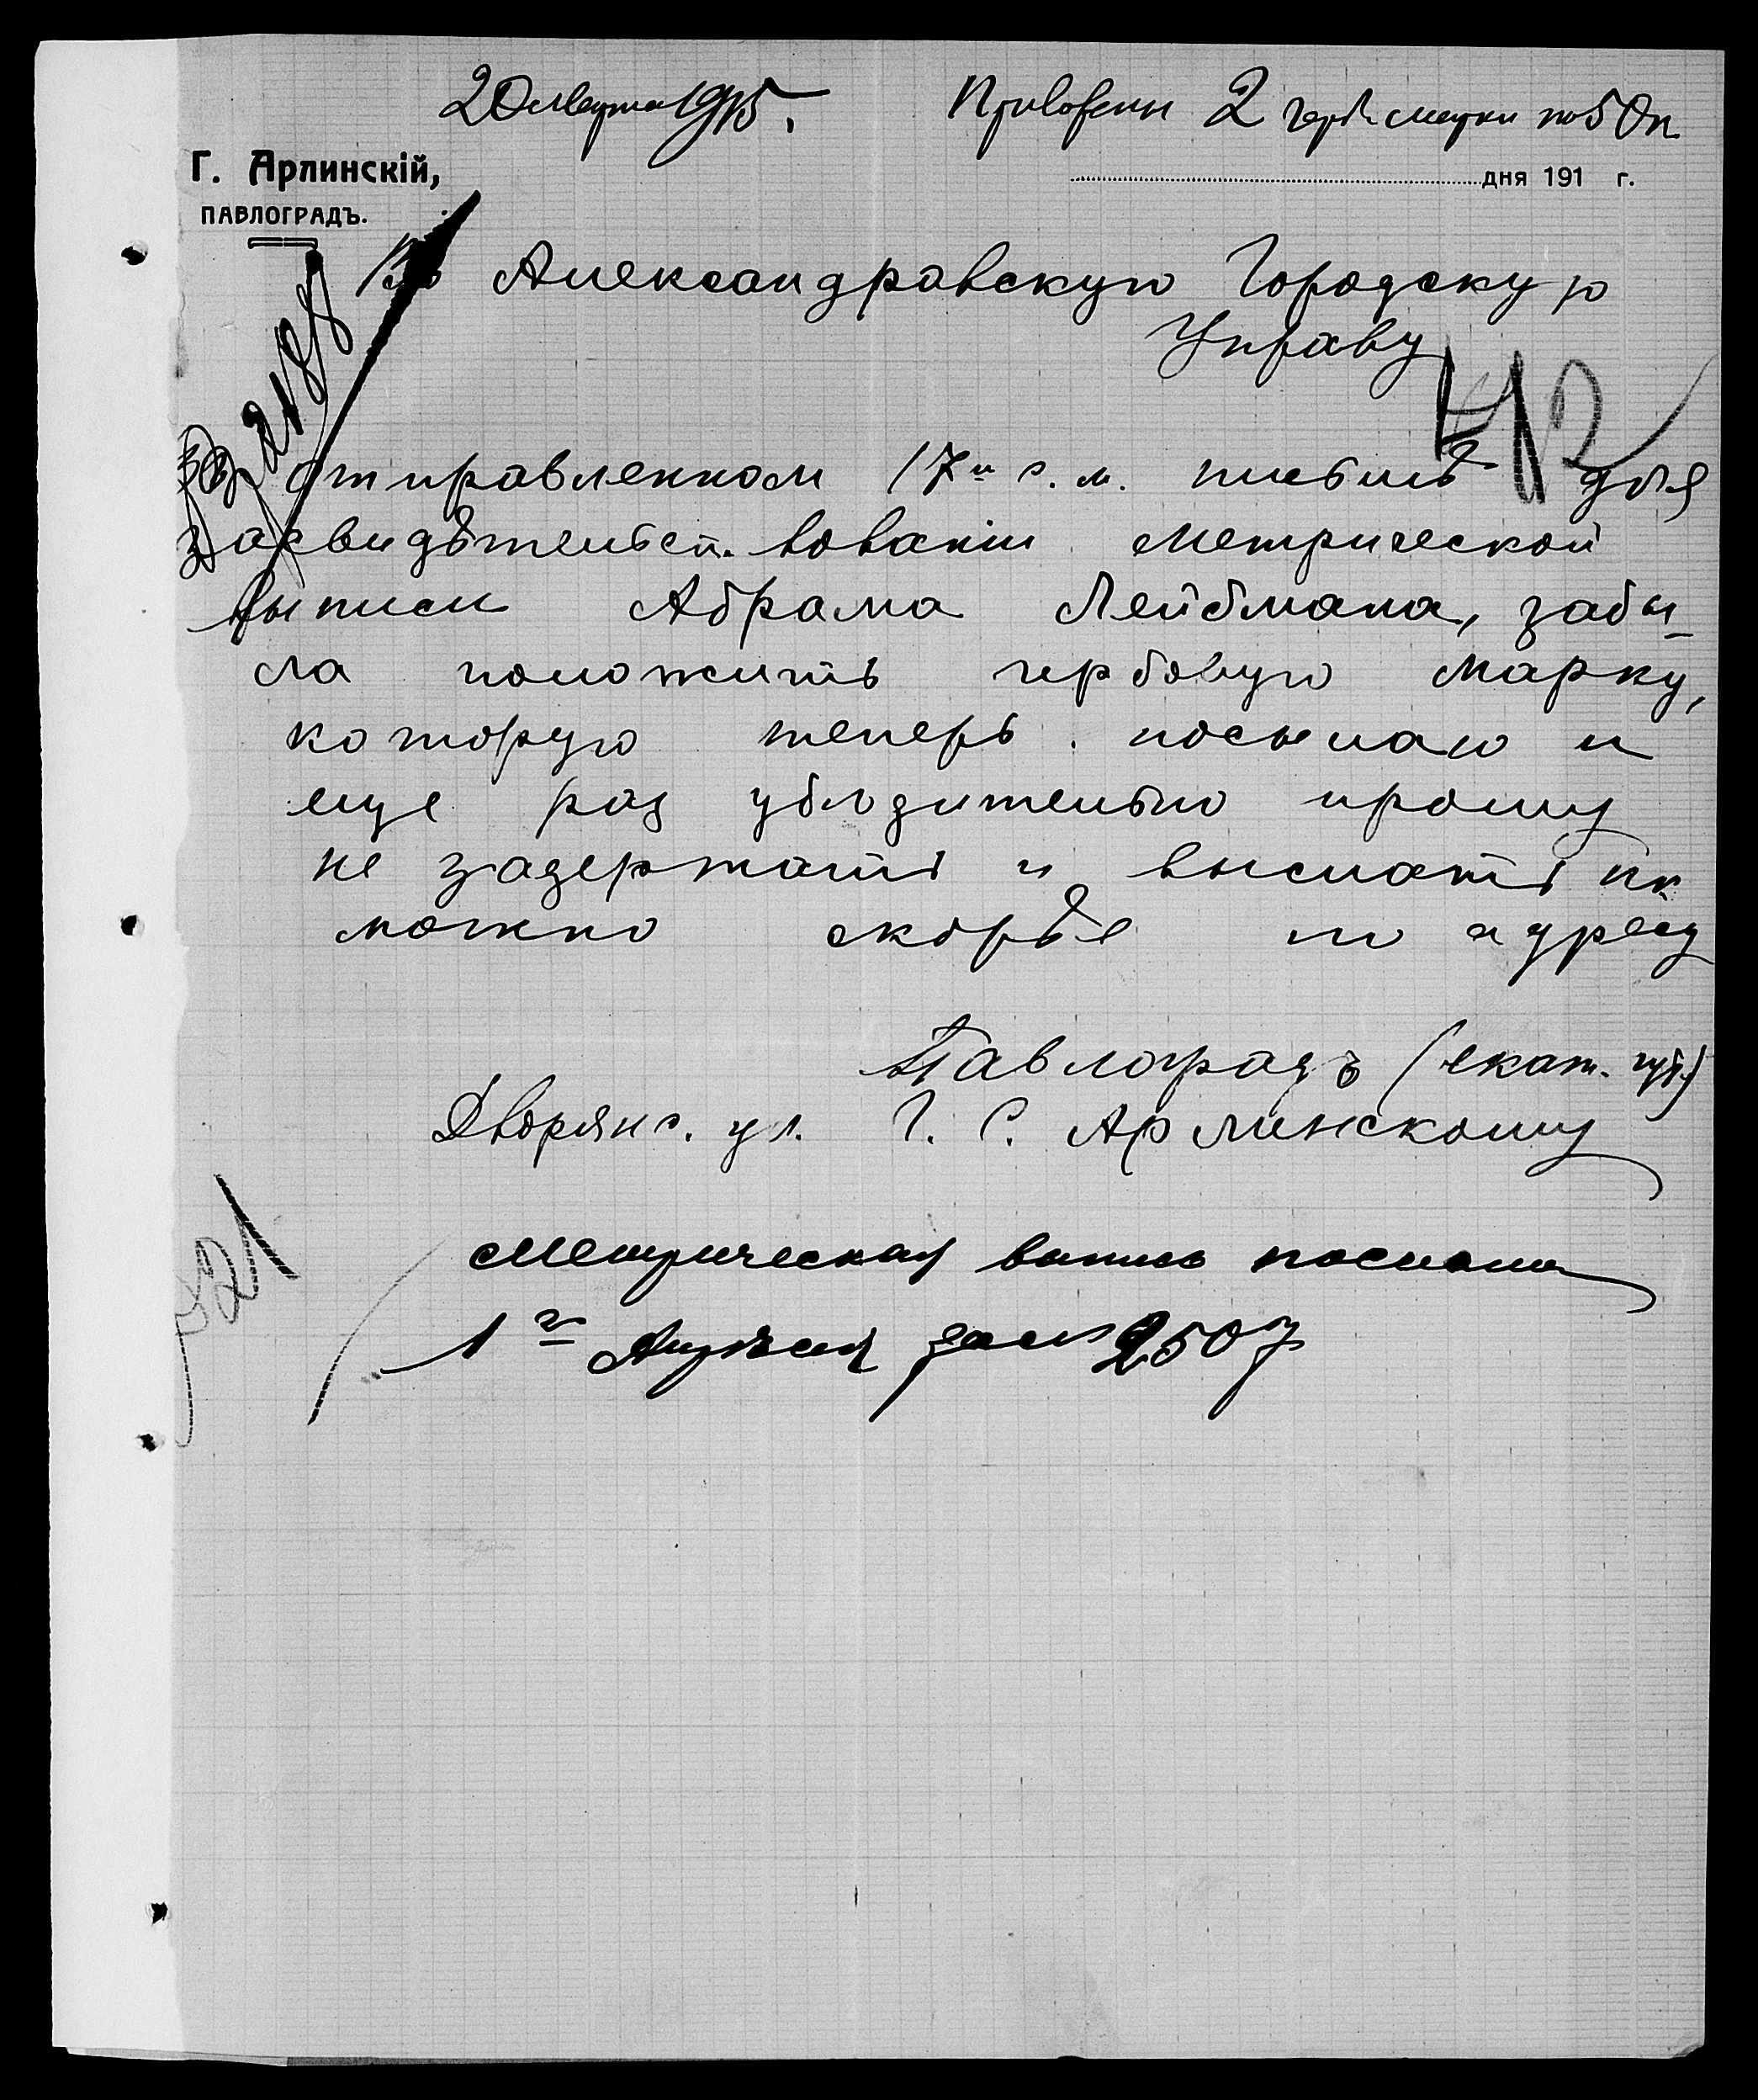 20 Марта 1915. Приложены 2 герб. марки по 50 к
Г. Арлинскій,
ПАВЛОГРАДЪ.
дня 191 г.
Въ Александровскую Городскую
Управу
412
В отправленном 17го с. м. письмѣ для
засвидѣтельст. вованіи метрической
выписи Абрама Лейбмана, забы-
ла положить гербовую марку,
которую теперь посылаю и
еще раз убѣдительно прошу
не задержать и выслать как
можно скорѣе по адресу
Павлоградъ (Екат. губ.)
Дворянс. ул. Г. С. Арлинскому
Метрическая выпись послана
1го Апрѣля за № 2507